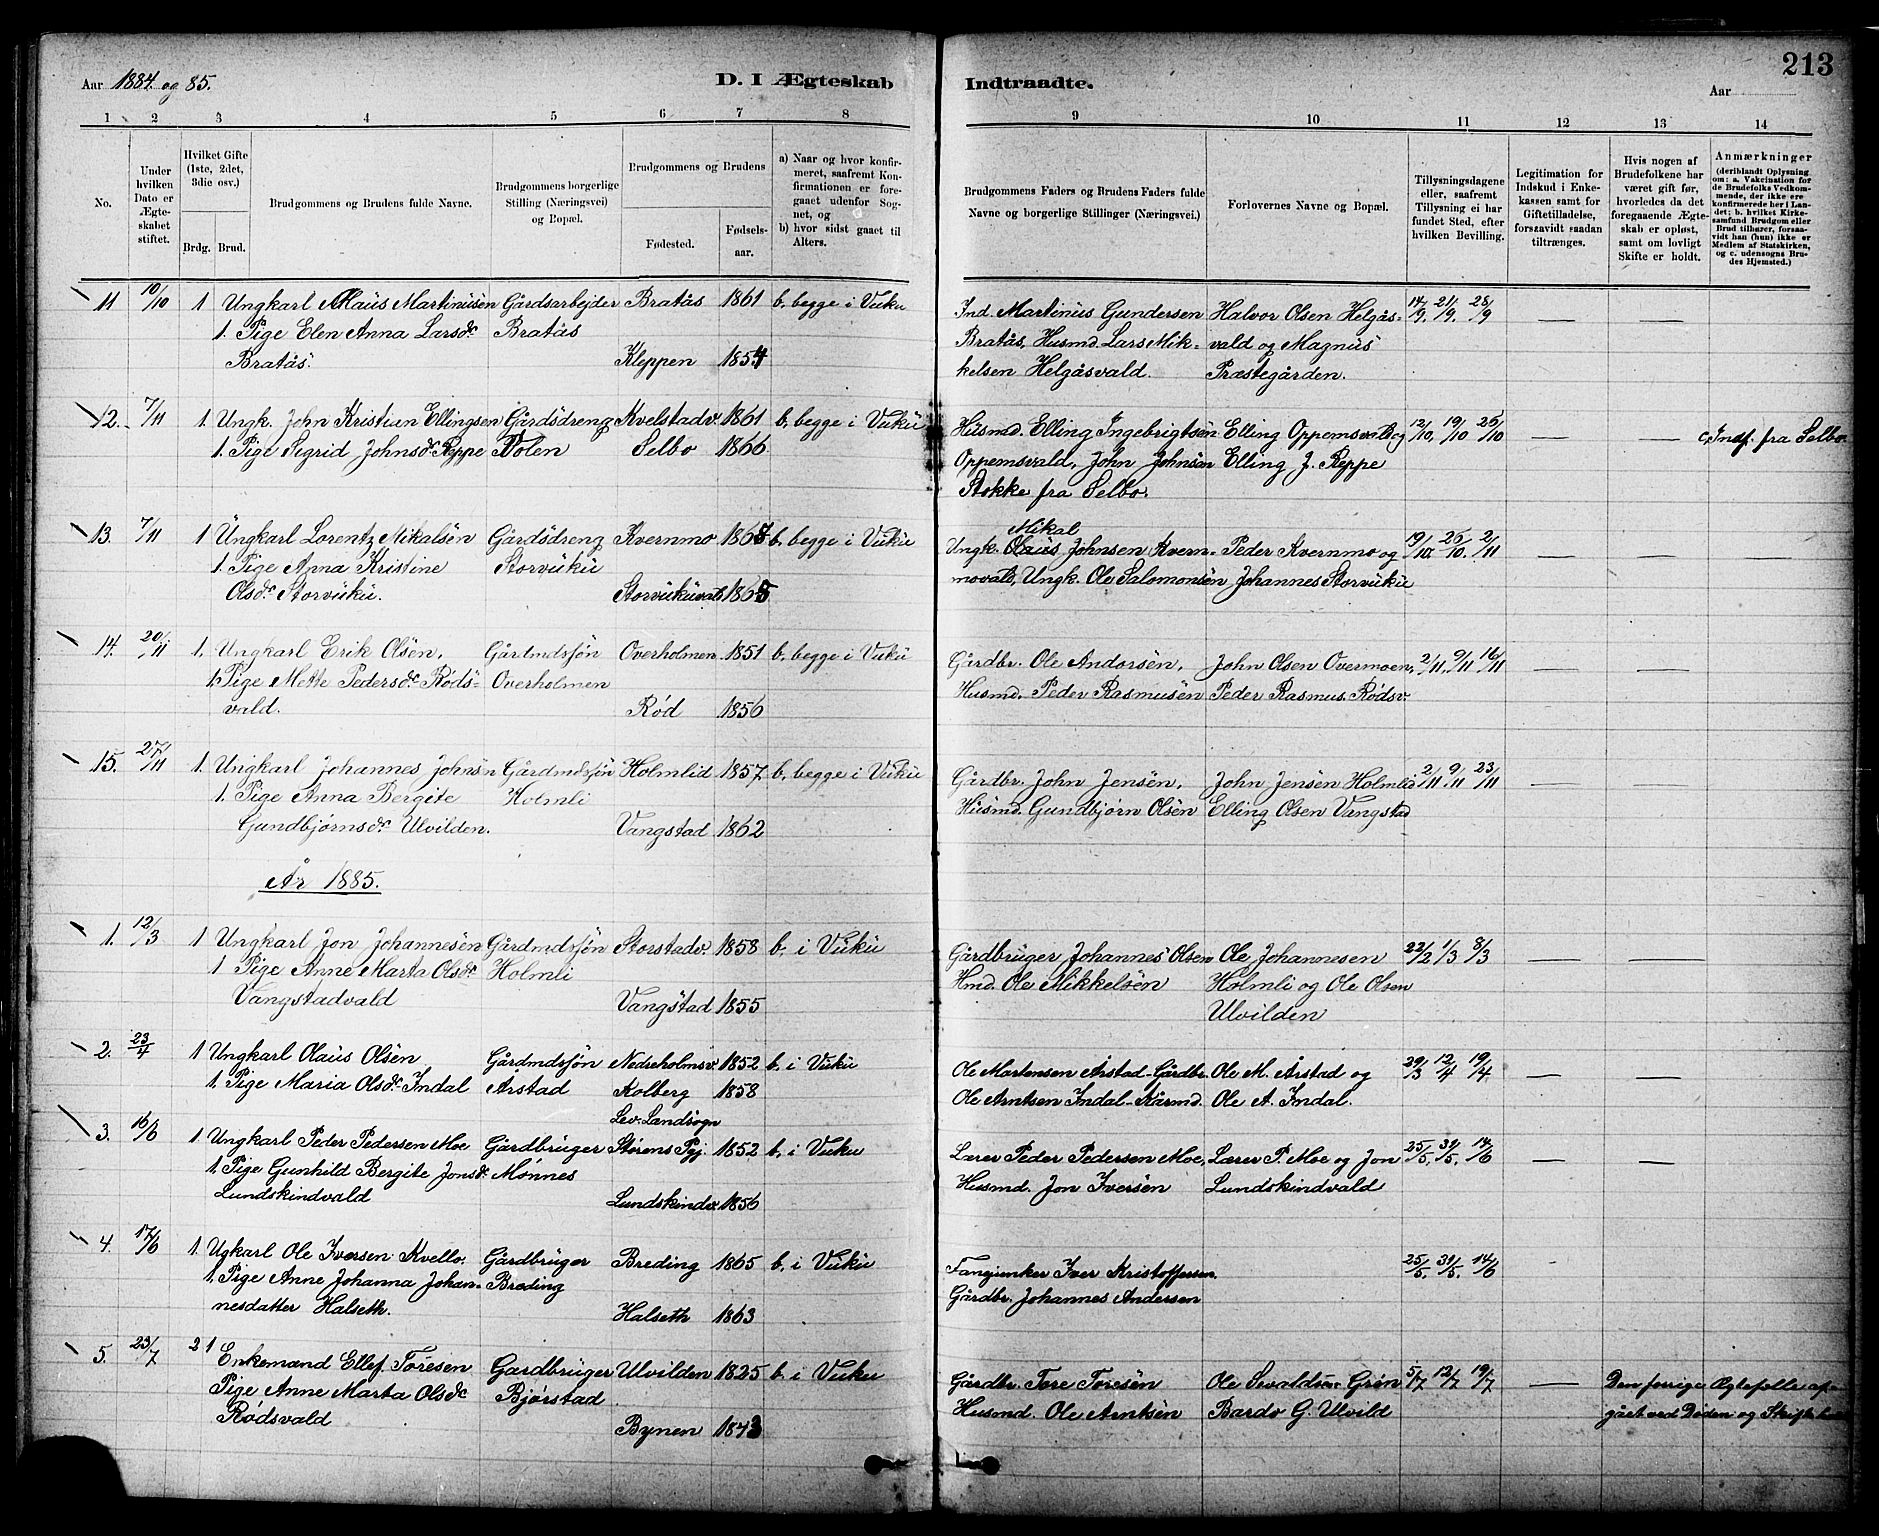 213
Aar 1884 og 85.
D. I Ægteskab
Indtraadte.
Aar
1 2 3 4 5 6 7 8 9 10 11 12 13 14
No.
Under hvilken Dato er Ægteskabet stiftet.
Hvilket Gifte (1ste, 2det, 3die osv.)
Brdg. Brud.
Brudgommens og Brudens fulde Navne.
Brudgommens borgerlige Stilling (Næringsvei) og Bopæl.
Brudgommens og Brudens
Fødested.
Fødselsaar.
a) Naar og hvor konfirmeret, saafremt Konfirmationen er foregaaet udenfor Sognet, og
b) hvor sidst gaaet til Alters.
Brudgommens Faders og Brudens Faders fulde Navne og borgerlige Stillinger (Næringsvei.)
Forlovernes Navne og Bopæl.
Tillysningsdagene eller, saafremt Tillysning ei har fundet Sted, efter hvilken Bevilling.
Legitimation for Indskud i Enkekassen samt for Giftetilladelse, forsaavidt saadan tiltrænges.
Hvis nogen af Brudefolkene har været gift før, hvorledes da det foregaaende Ægteskab er opløst, samt om lovligt Skifte er holdt.
Anmærkninger (deriblandt Oplysning om: a. Vakcination for de Brudefolks Vedkommende, der ikke ere konfirmerede her i Landet; b. hvilket Kirkesamfund Brudgom eller Brud tilhører, forsaavidt han (hun) ikke er Medlem af Statskirken, og c. udensogns Brudes Hjemsted.)
11 10/10 1 Ungkarl Martinusen Gårdsarbejder Bratås 1861 b, begge i Vuku Ind. Martinus Gundersen Halvor Olsen Helgås- 14/9. 21/9. 28/9 — —
1. Pige Elen Anna Larsdr. Bratås Bratås, Husmd. Lars Mik- vald og Magnus
Bratås. Kleppen 1854 kelsen Helgåsvald. Præstegården.
12. 7/11 1. Ungk. John Kristian Ellingsen Gårdsdreng Kvelstadv. 1861 b, begge i Vuku Husmd. Elling Ingebrigtsen Elling Oppemsvald og 12/10, 19/10 26/10 — — c, Indf. fra Selbo
1. Pige Sigrid Johnsdr. Reppe Dolen Selbo 1866 Oppemsvald, John Johnsen Elling J. Reppe
Stokke fra Selbo.
13. 7/11 1 Ungkarl Lorentz Mikalsen Gårdsdreng Kvernmo b, begge i Vuku Mikal
Ungk. Olaus Johnsen Kvern- Peder Kvernmo og 19/10. 26/10. 2/11 — —
1. Pige Anna Kristine Storvuku movald, Ungk. Ole Salomonsen Johannes Storvuku
Olsdr. Storvuku. Storvukuvald 1865
14. 20/11 1. Ungkarl Erik Olsen, Gårdmdsføn Overholmen 1851 b, begge i Vuku Gårdbr. Ole Andorsen, John Olsen Overmoen, 2/11, 9/11 16/11 — —
1. Pige Mette Pedersdr. Røds- Overholmen Husmd. Peder Rasmusen Peder Rasmus. Rødsv.
vald. Rød 1856
15. 27/11 1. Ungkarl Johannes Johnsen Gårdmdsføn Holmlid 1857 b, begge i Vuku Gårdbr. John Jensen, John Jensen Holmlid 2/11. 9/11 23/11 — —
1. Pige Anna Bergite Holmli Husmd. Gundbjørn Olsen Elling Olsen Vangstad
Gundbjørnsdr. Ulvilden. Vangstad 1862
År 1885.
1. 12/3 1 Ungkarl Jon Johannesen Gårdmdsføn Storstadv. 1858 b, i Vuku Gårdbruger Johannes Olsen Ole Johannesen 22/2 1/3 8/3 — —
1 Pige Anne Marta Olsdr. Holmli Hmd. Ole Mikkelsen Holmli og Ole Olsen
Vangstadvald Vangstad 1855 Ulvilden
2. 23/4 1 Ungkarl Olaus Olsen Gårdmdsføn Nedreholmsv. 1852 b, i Vuku Ole Martensen Årstad-Gårdbr. Ole M. Årstad og 29/3 12/4 19/4 — —
1. Pige Maria Olsdr. Indal Årstad Kolberg 1858 Ole Arntsen Indal-Kårmd. Ole A. Indal.
Lev. Landsogn
3. 16/6 1 Ungkarl Peder Pedersen Moe Gårdbruger Størens Pgj. 1852 b, i Vuku Lærer Peder Pedersen Moe, Lærer P. Moe og Jon 25/5. 31/5. 14/6 — —
1. Pige Gunhild Bergite Jonsdr. Mønnes Husmd. Jon Iversen Lundskindvald
Lundskindvald Lundskindv. 1856
4. 17/6 1. Ugkarl Ole Iversen Kvello. Gårdbruger Breding 1865 b, i Vuku Fanejunker Iver Kristoffersen. 25/5. 31/5. 14/6
1. Pige Anne Johanna Johan- Breding Gårdbr. Johannes Andersen
nesdatter Halseth. Halseth 1863
5. 23/7 2 1 Enkemand Ellef Toresen Gardbruger Ulvilden 1825 b, i Vuku Gårdbr. Tore Toresen Ole Sivaldsen Grøn 5/7 12/7 19/7 — Den forrige Ægtefælle af-
Pige Anne Marta Olsdr. Bjørstad Husmd. Ole Arntsen Bardo G. Ulvild gået ved Døden og Skifte
Rødsvald Bynen 1843